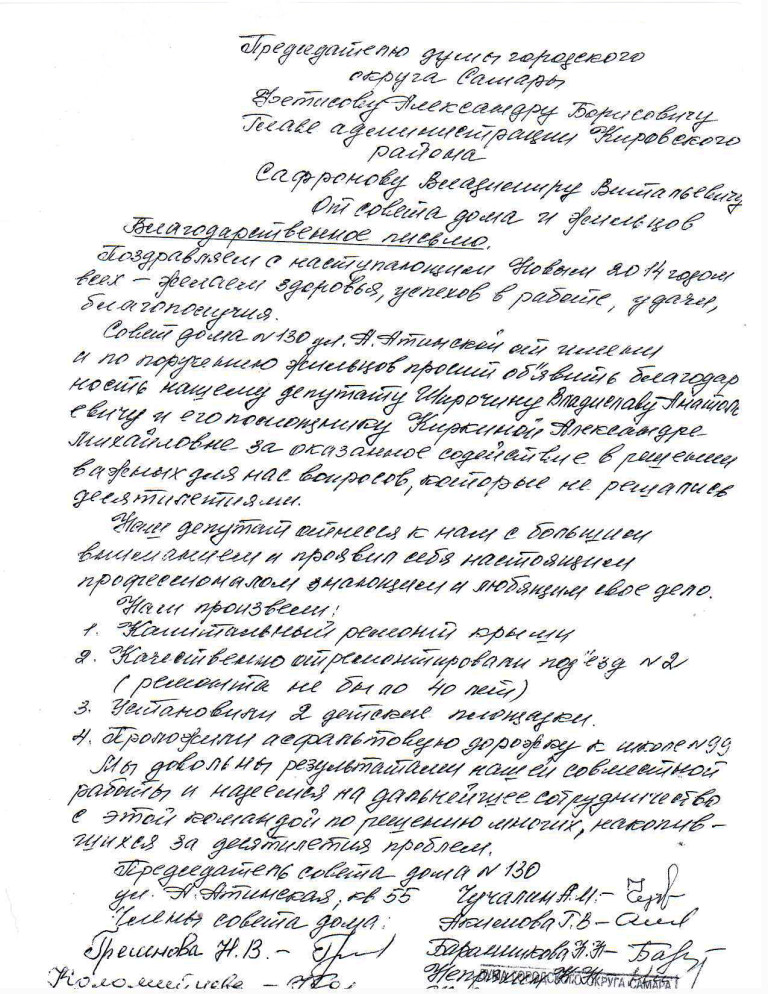 Председателю думы городского
округа Самары
Фетисову Александру Борисовичу
Главе администрации Кировского
района
Сафронову Владимиру Витальевичу
От совета дома и жильцов
Благодарственное письмо.
Поздравляем с наступающим Новым 2014 годом
всех – желаем здоровья, успехов в работе, удачи,
благополучия.
Совет дома №130 ул. А.Атинской от имени
и по поручению жильцов просит объявить благодар
ность нашему депутату Широчину Владиславу Анатоль
евичу и его помощнику Киркиной Александре
Михайловне за оказанное содействие в решении
важных для нас вопросов, которые не решались
десятилетиями.
Наш депутат отнесся к нам с большим
вниманием и проявил себя настоящим
профессионалом знающим и любящим свое дело.
Нам произвели:
1. Капитальный ремонт крыши
2. Качественно отремонтировали подъезд №2
(ремонта не было 40 лет)
3. Установили 2 детские площадки.
4. Проложили асфальтовую дорожку к школе №99
Мы довольны результатами нашей совместной
работы и надеемся на дальнейшее сотрудничество
с этой командой по решению многих, накопив-
шихся за десятилетия проблем.
Председатель совета дома №130
ул. А.Атинская, кв 55 Чучалин А.М. –
Члены совета дома: Акимова Г.В –
Гремнова Н.В. – Баранникова Н.Н –
Коломийцева –
ДУМА ГОРОДСКОГО ОКРУГА САМАРА